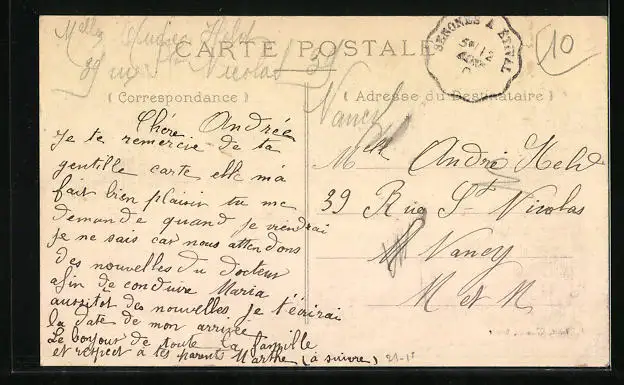 Melle Andrée Held
39 rue St Nicolas 39
Nancy
CARTE POSTALE
(Correspondance)
(Adresse du Destinataire)
SENONES A ETIVAL
10
Chère Andrée
Je te remercie de ta
gentille carte elle m'a
fait bien plaisir tu me
demande quand je viendrai
je ne sais car nous attendons
des nouvelles du docteur
afin de conduire Maria
aussitot des nouvelles je t'écrirai
la date de mon arrivée
Le bonjour de toute la famille
et respect à tes parents Marthe (à suivre)
Melle André Held
39 Rue St Nicolas
Nancy
M et M